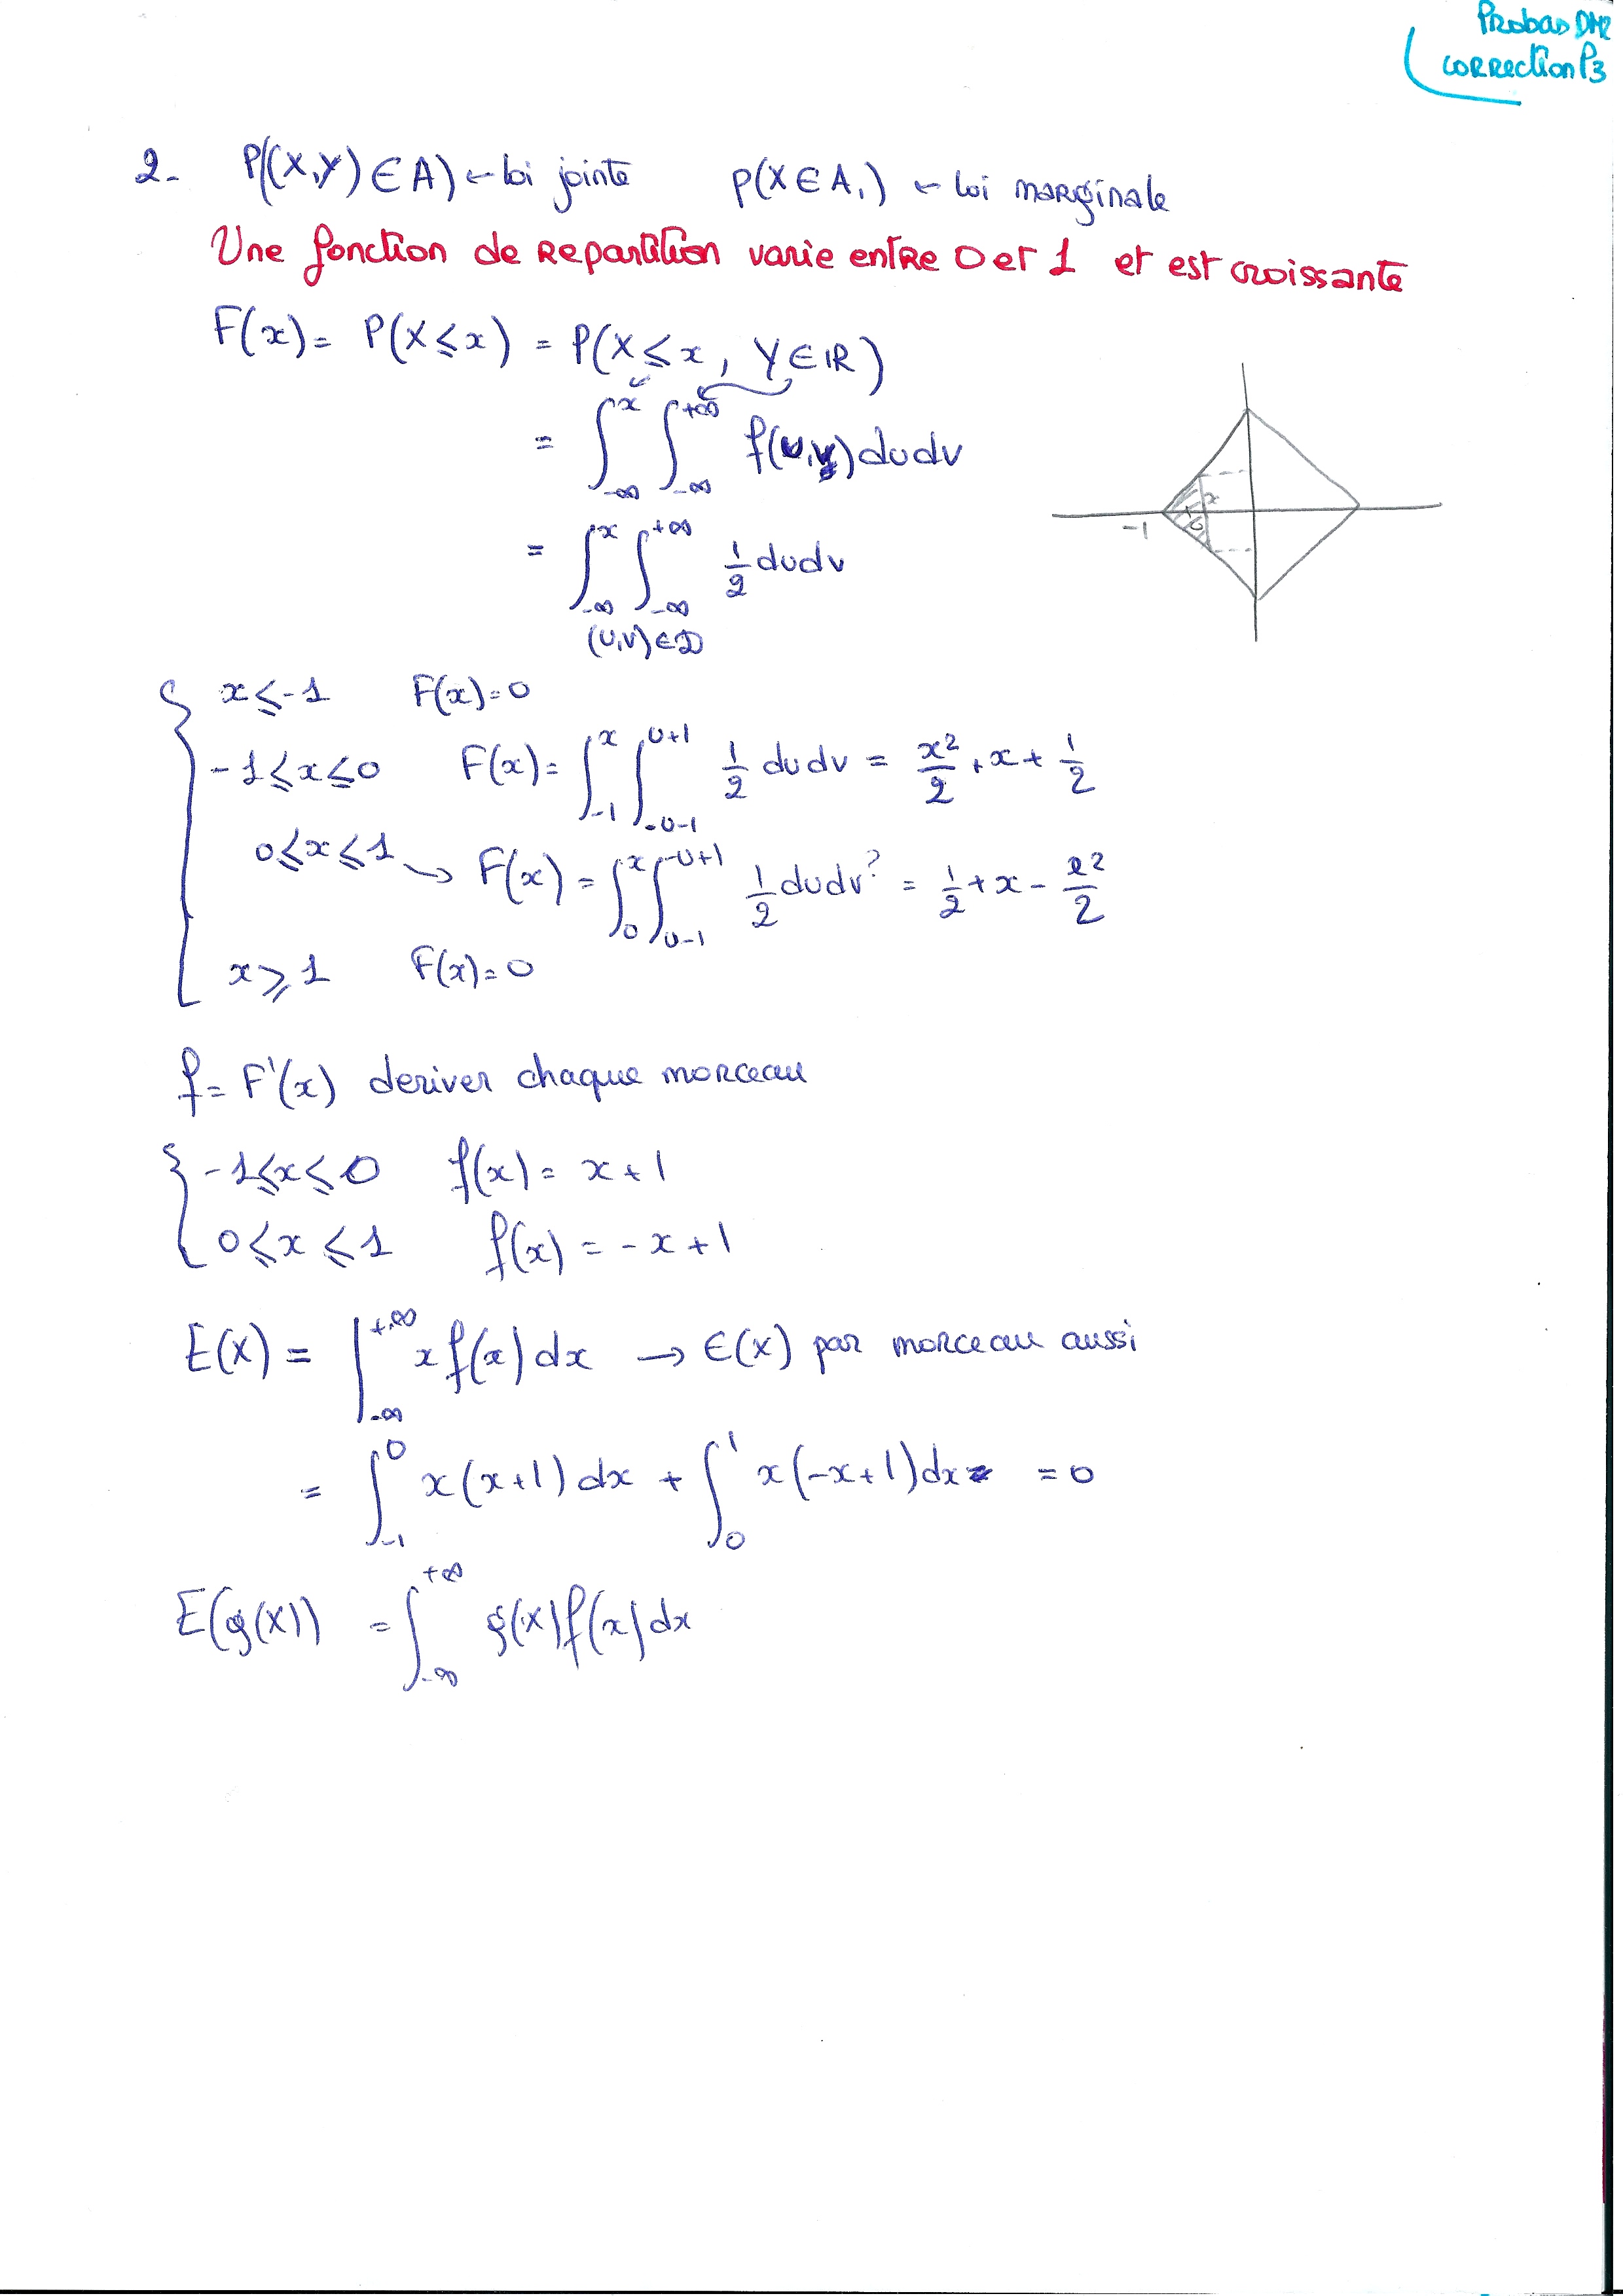 Probas DM2
correction P3
2- P((X,Y) ∈ A) ← loi jointe p(X ∈ A₁) ← loi marginale
Une fonction de Repartition varie entre 0 et 1 et est croissante
F(x) = P(X ⩽ x) = P(X ⩽ x, Y ∈ ℝ)
= ∫_{-∞}^{x} ∫_{-∞}^{+∞} f(u,v) du dv
= ∫_{-∞}^{x} ∫_{-∞}^{+∞} 1/2 du dv
(u,v) ∈ D
-1
x
x ⩽ -1 F(x) = 0
-1 ⩽ x ⩽ 0 F(x) = ∫_{-1}^{x} ∫_{-u-1}^{u+1} 1/2 du dv = x²/2 + x + 1/2
0 ⩽ x ⩽ 1 → F(x) = ∫_{0}^{x} ∫_{u-1}^{-u+1} 1/2 du dv ? = 1/2 + x - x²/2
x ⩾ 1 F(x) = 0
f = F'(x) deriver chaque morceau
-1 ⩽ x ⩽ 0 f(x) = x + 1
0 ⩽ x ⩽ 1 f(x) = -x + 1
E(X) = ∫_{-∞}^{+∞} x f(x) dx → E(X) par morceau aussi
= ∫_{-1}^{0} x(x+1) dx + ∫_{0}^{1} x(-x+1) dx = 0
E(g(X)) = ∫_{-∞}^{+∞} g(x) f(x) dx